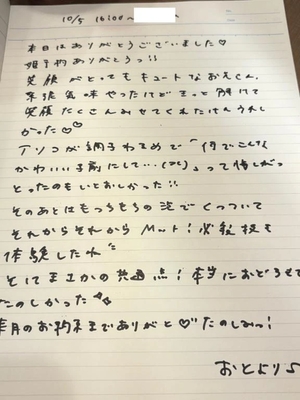 10/5 16:00～
本日はありがとうございました♡
姫予約ありがとうっ!!
笑顔がとってもキュートなお兄くん、
緊張気味やったけどまっと解けて
笑顔たくさんみせてくれたけんうれし
かった♡♡
Tソコが調子わるめで「何でこんな
かわいい子前にして…(泣)」って悔しがっ
とったのもいとおしかった!!
そのあとはもっちもちの泡でくっついて
それからそれからMット!必殺技も
体験したね
そしてまさかの共通点!本当におどろきで
たのしかった
来月のお約束までありがと♡たのしみっ!
おとより